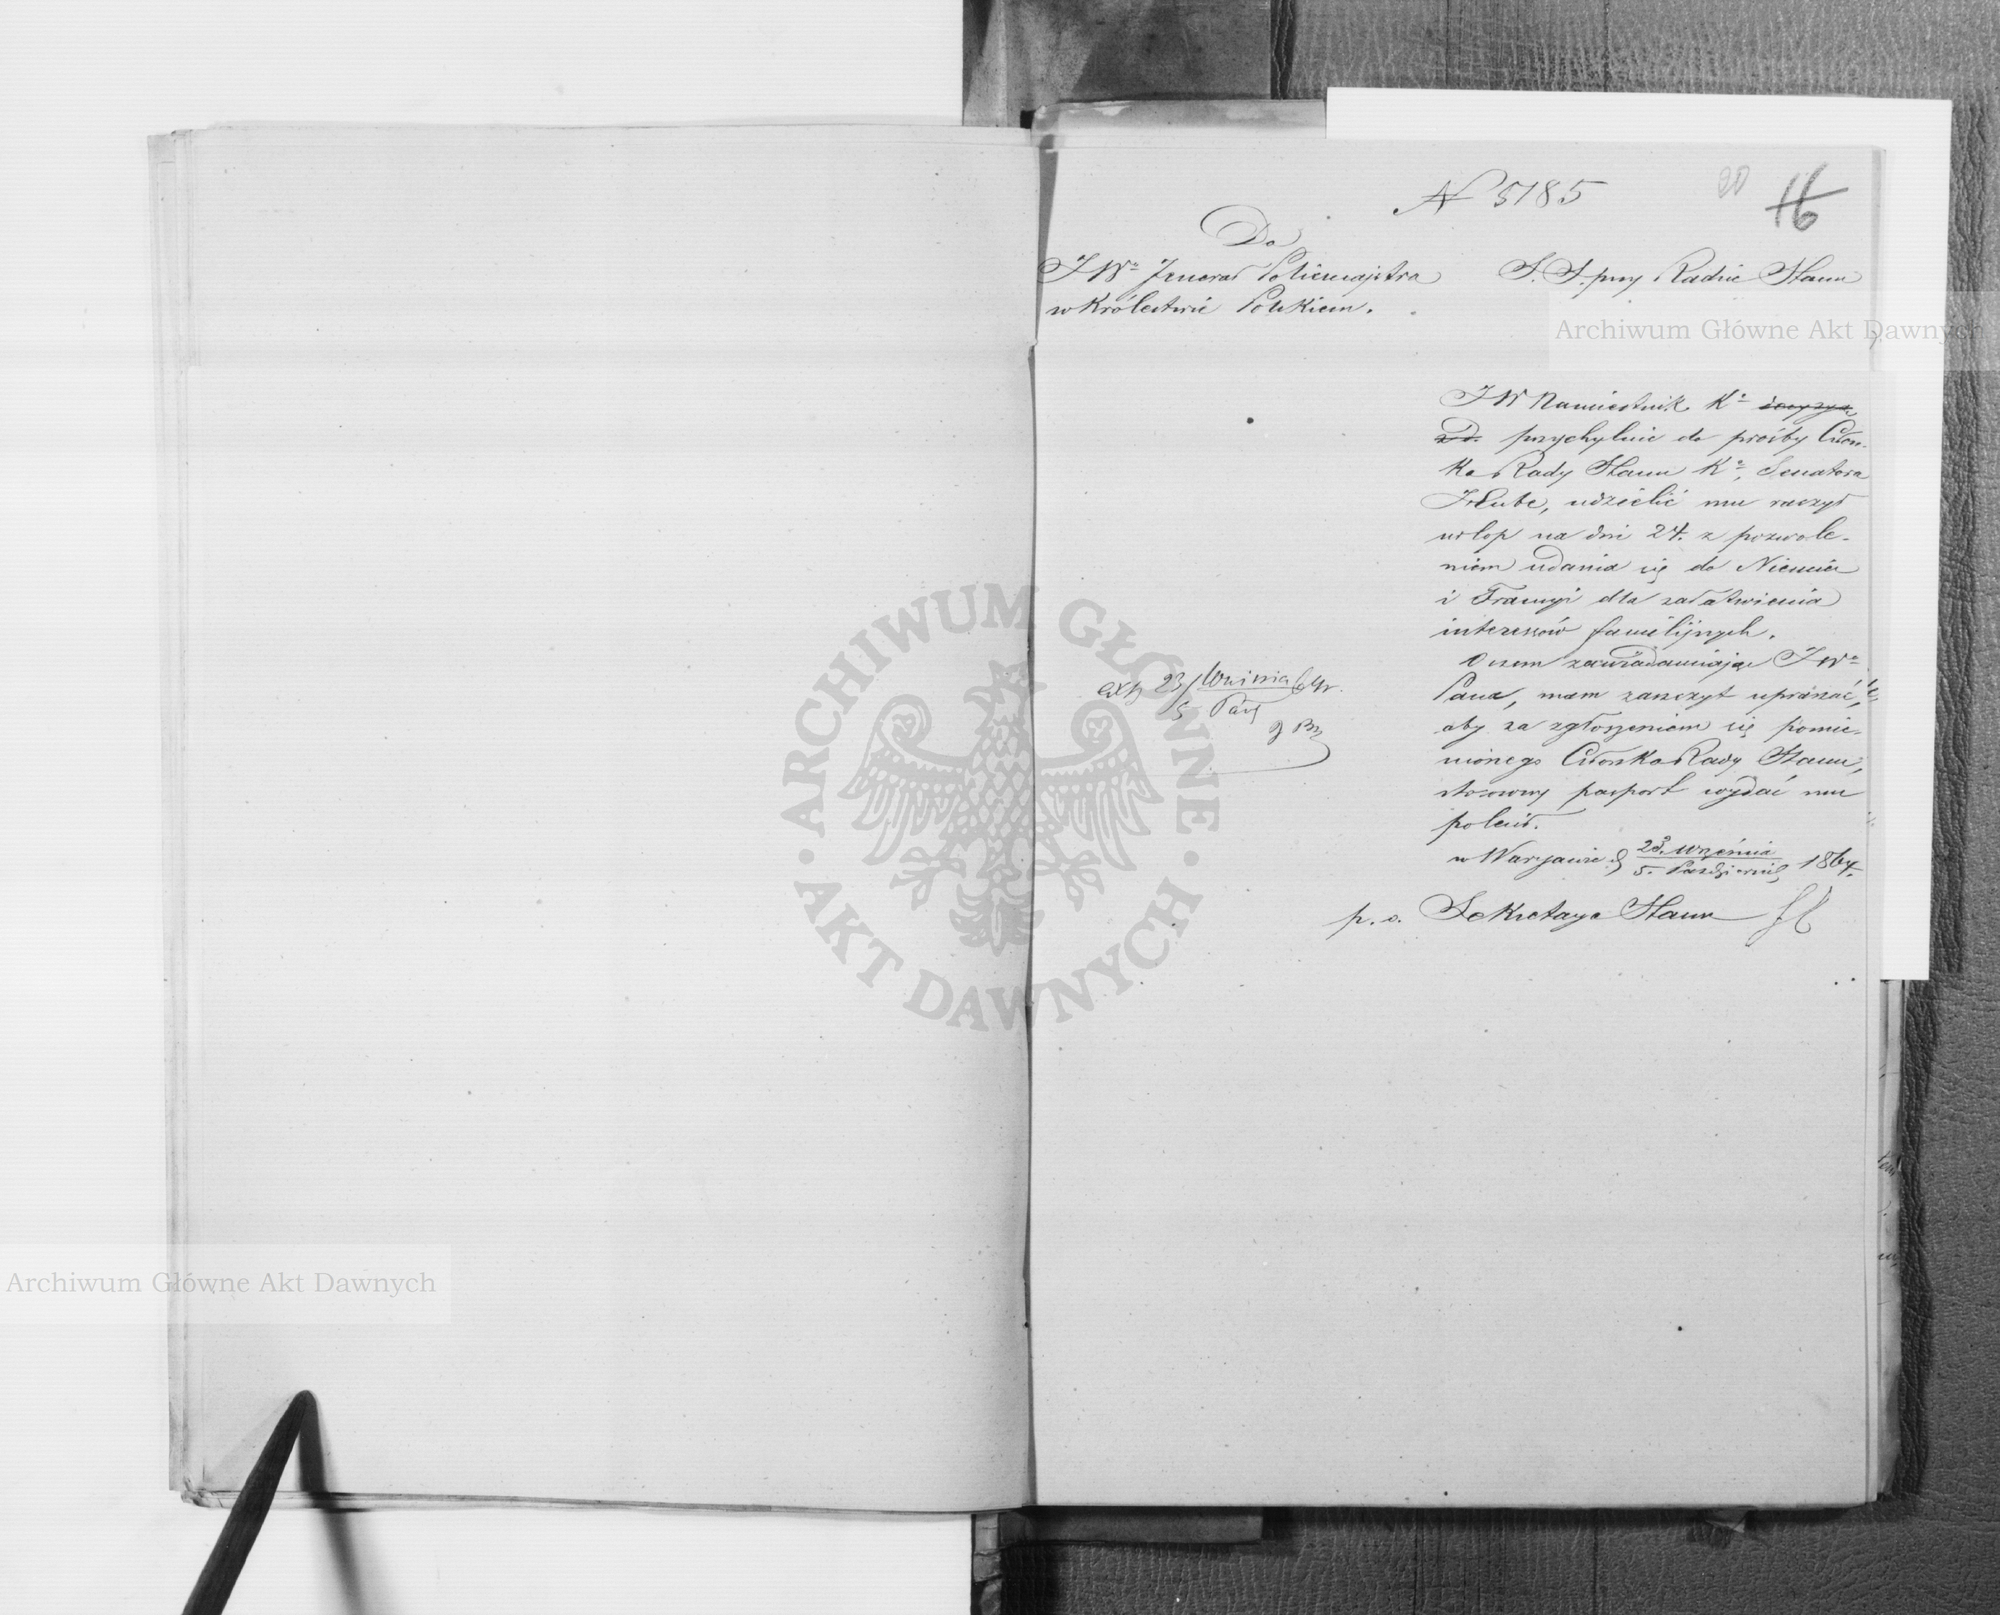 N 5185
20 16
Do
JWo Jenerał Policmajstra
w Królestwie Polskiem.
S. S. przy Radzie Stanu
Archiwum Główne Akt Dawnych
JW Namiestnik Ko
przychylnie do prośby Człon-
ka Rady Stanu Ko, Senatora
Hube, udzielić mu raczył
urlop na dni 24. z pozwole-
niem udania się do Niemiec
i Francyi dla załatwienia
interessów familijnych.
O czem zawiadamiając JWo
Pana, mam zaszczyt upraszać,
aby za zgłoszeniem się pomie-
nionego Członka Rady Stanu,
stosowny pasport wydać mu
polecił.
w Warszawie d 23. Września / 5. Październik 1864.
p. o. Sekretarza Stanu
exp 23/5 Września / Paź 64 r.
ARCHIWUM GŁÓWNE
AKT DAWNYCH
Archiwum Główne Akt Dawnych